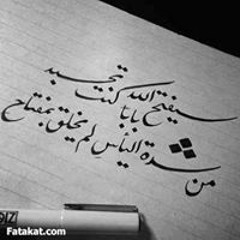 سيفتح الله بابا كنت تحسبه
من شدة اليأس لم يخلق بمفتاح
Fatakat.com